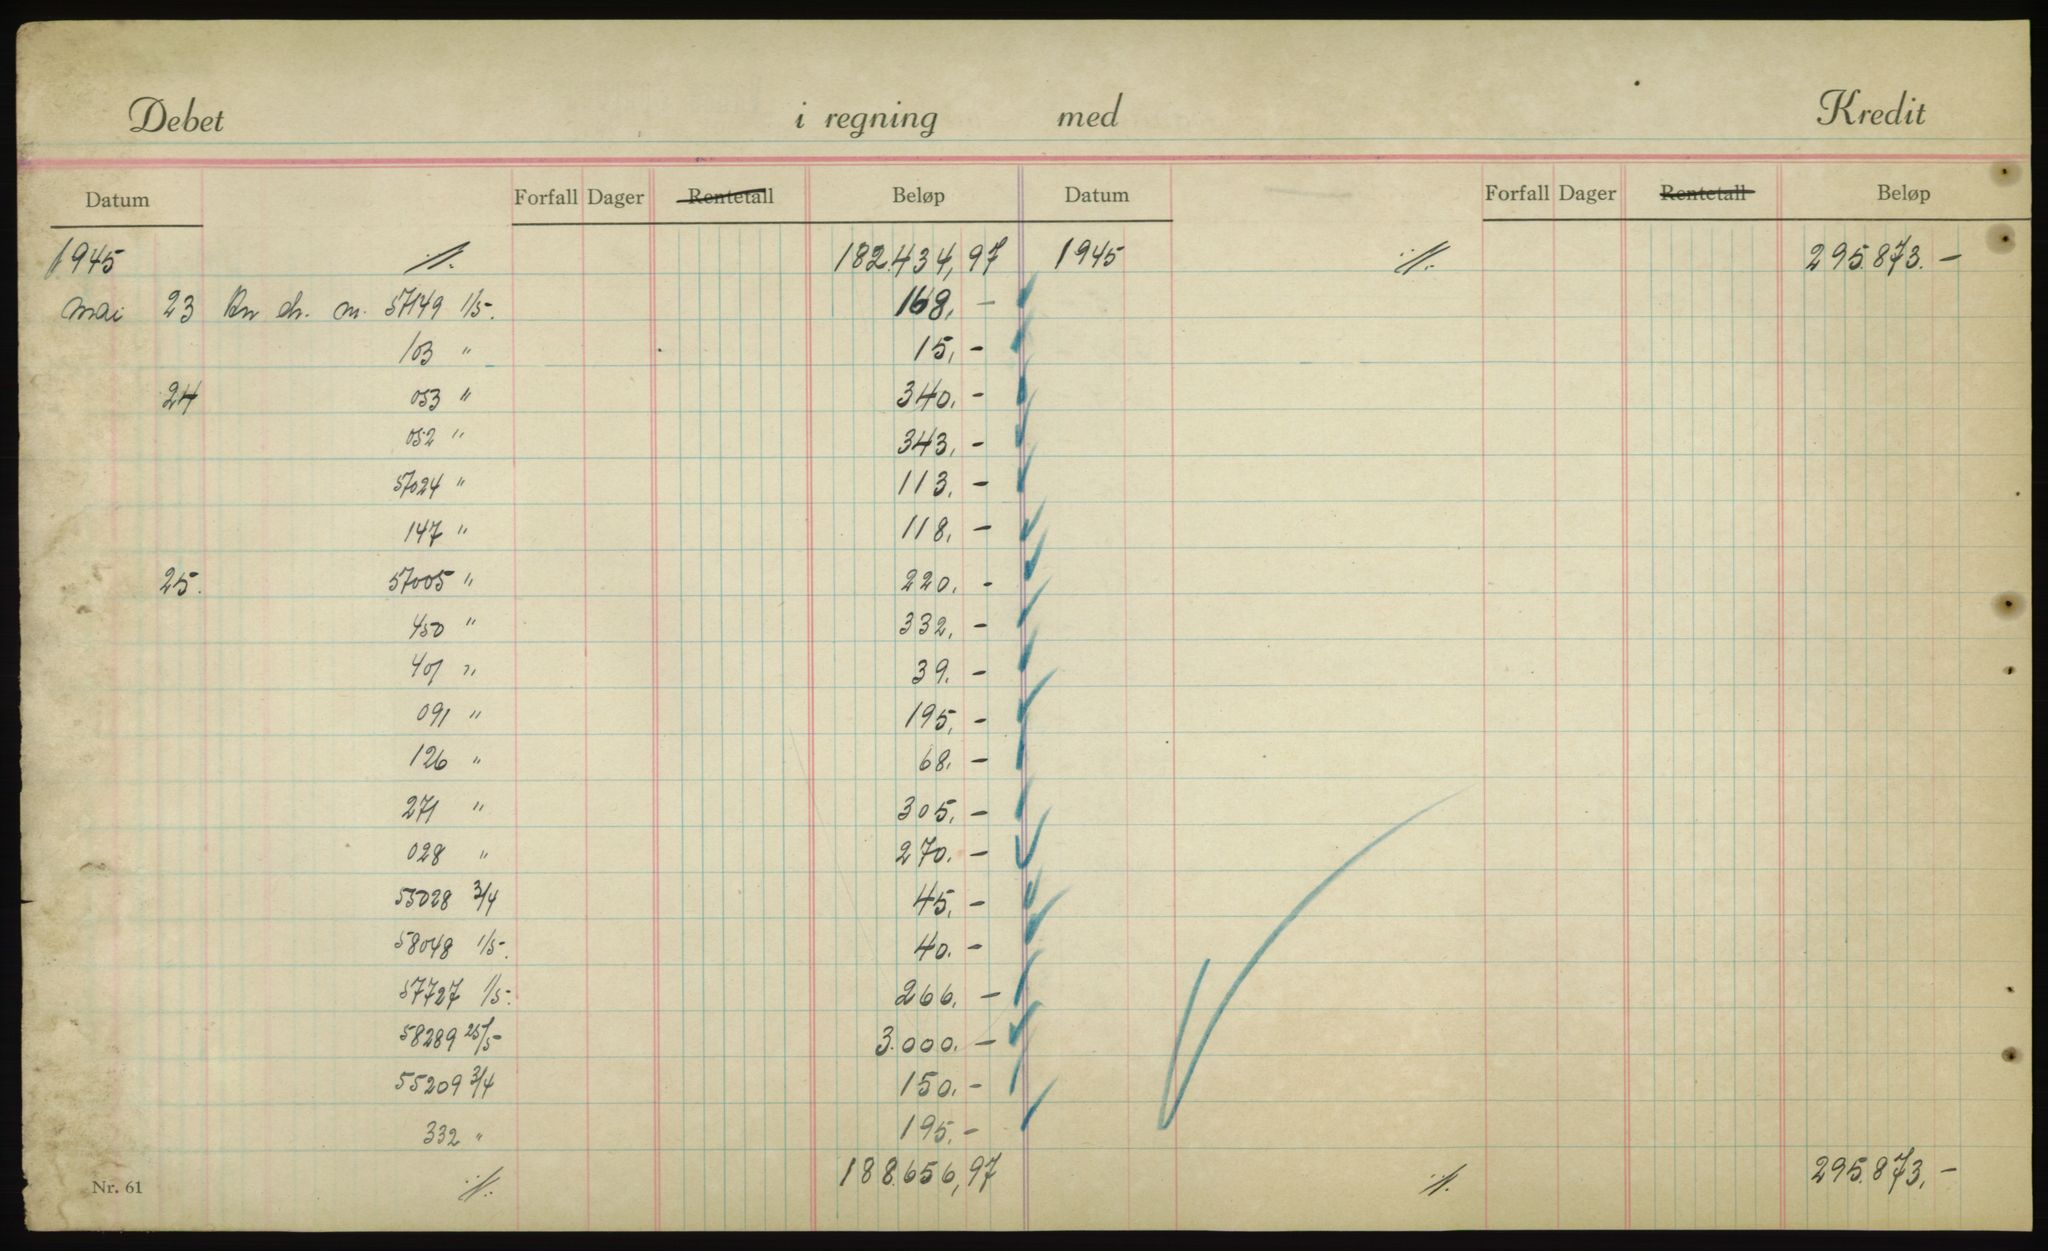 Debet i regning med Kredit
Datum Forfall Dager Rentetall Beløp Datum Forfall Dager Rentetall Beløp
1945 ·//· 182.434,97 1945 ·//· 295.873.-
mai 23 57149 1/5- 168,-
103 " 15,-
24 053 " 340.-
052 " 343,-
57024 " 113.-
147 " 118,-
25. 57005 " 220.-
450 " 332,-
401 " 39.-
091 " 195,-
126 " 68.-
271 " 305,-
028 " 270.-
55028 3/4 45,-
58048 1/5-. 40.-
57727 1/5-. 266.-
58289 25/5- 3.000.-
55209 3/4 150.-
332 " 195.-
·//· 188.656,97 ·//· 295.873,-
Nr. 61